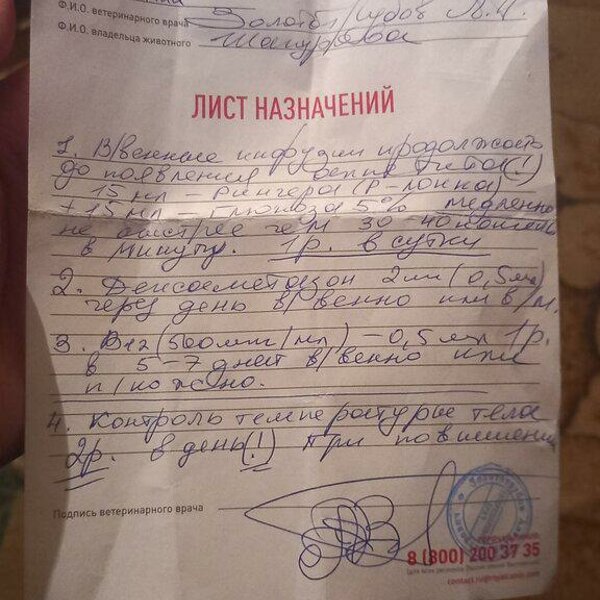 Ф.И.О. ветеринарного врача
Ф.И.О. владельца животного
ЛИСТ НАЗНАЧЕНИЙ
1. В/венные инфузии продолжать
до появления аппетита(!)
15 мл – Рингера (Р-Локка)
+ 15 мл – глюкоза 5% медленно
не быстрее чем 30-40 капель
в минуту. 1р. в сутки
2. Дексаметазон 2мг (0,5мл)
через день в/венно или в/м.
3. В12 (500мкг/мл) – 0,5 мл 1р.
в 5-7 дней в/венно или
п/кожно.
4. Контроль температуры тела
2р. в день(!) При повышении
Подпись ветеринарного врача
8 (800) 200 37 35